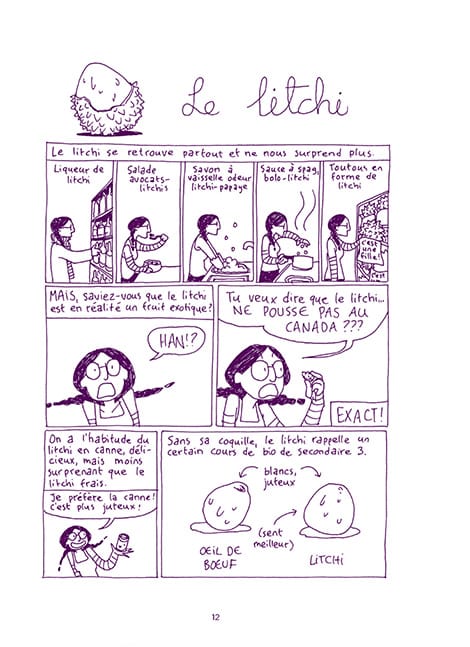 Le litchi
Le litchi se retrouve partout et ne nous surprend plus.
Liqueur de
litchi
Salade
avocats-
litchis
Savon à
vaisselle odeur
litchi-papaye
Sauce à spag
bolo-litchi
Toutous en
forme de
litchi
c'est
une
fille!
c'est
MAIS, saviez-vous que le litchi
est en réalité un fruit exotique?
HAN!?
Tu veux dire que le litchi...
NE POUSSE PAS AU
CANADA ???
EXACT!
On a l'habitude du
litchi en canne, déli-
cieux, mais moins
surprenant que le
litchi frais.
Je préfère la canne!
c'est plus juteux!
Sans sa coquille, le litchi rappelle un
certain cours de bio de secondaire 3.
blancs,
juteux
(sent
meilleur)
OEIL DE
BOEUF
LITCHI
12